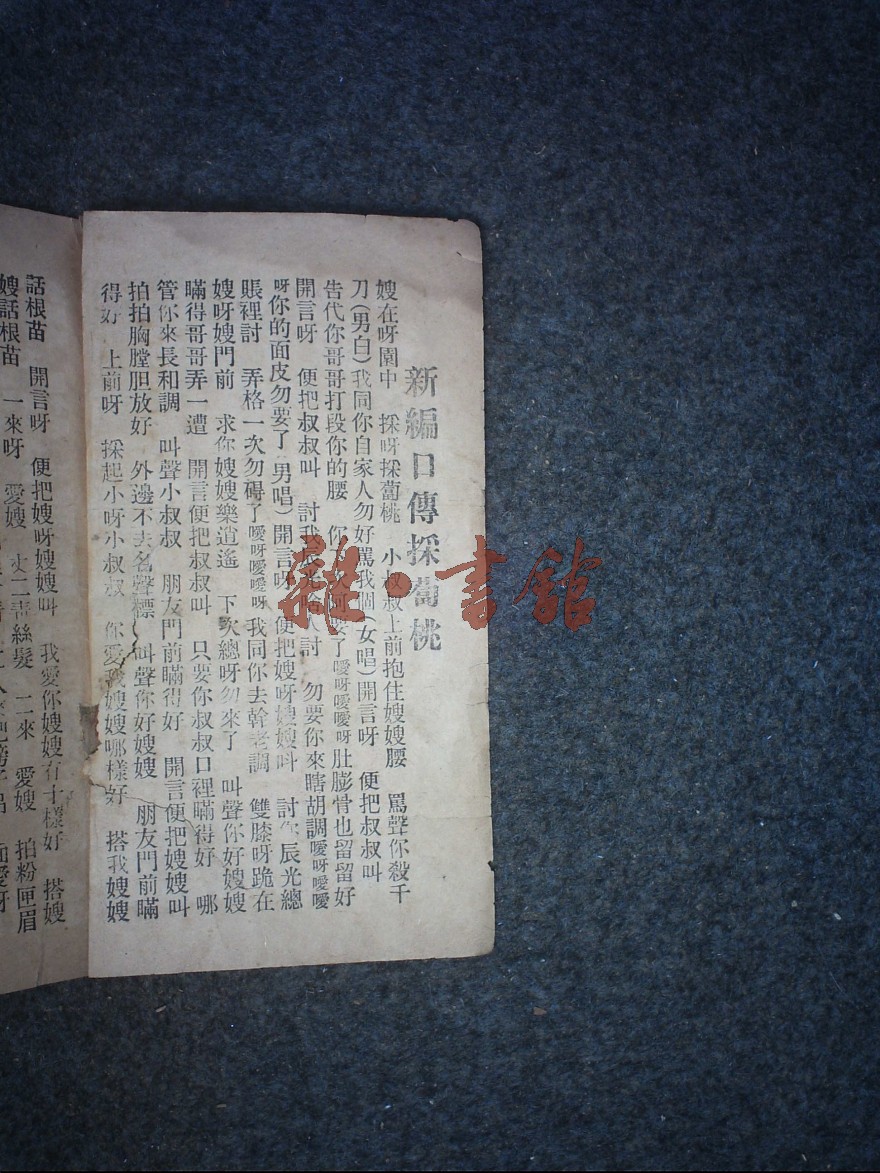 新編口傳採萄桃
嫂在呀園中　採呀採萄桃　小叔叔上前抱住嫂嫂腰　罵聲你殺千
刀(男白)我同你自家人勿好罵我個(女唱)開言呀　便把叔叔叫
告代你哥哥打段你的腰　你 了噯呀噯噯呀肚膨骨也留留好
開言呀　便把叔叔叫　討我 討　勿要你來瞎胡調噯呀噯噯
呀你的面皮勿要了(男唱)開言呀　便把嫂呀嫂嫂叫　討你辰光總
賬裡討　弄格一次勿碍了噯呀噯噯呀我同你去幹老調　雙膝呀跪在
嫂呀嫂門前　求你嫂嫂樂逍遙　下次總呀勿來了　叫聲你好嫂嫂
瞞得哥哥弄一遭　開言便把叔叔叫　只要你叔叔口裡瞞得好　哪
管你來長和調　叫聲小叔叔　朋友門前瞞得好　開言便把嫂嫂叫
拍拍胸膛胆放好　外邊不去名聲標　叫聲你好嫂嫂　朋友門前瞞
得好　上前呀　採起小呀小叔叔　你愛我嫂嫂哪樣好　搭我嫂嫂
話根苗　開言呀　便把嫂呀嫂嫂叫　我愛你嫂嫂有十樣好　搭嫂
嫂話根苗　一來呀　愛嫂　丈二青絲髮　二來　愛嫂　拍粉匣眉
雜·書舘